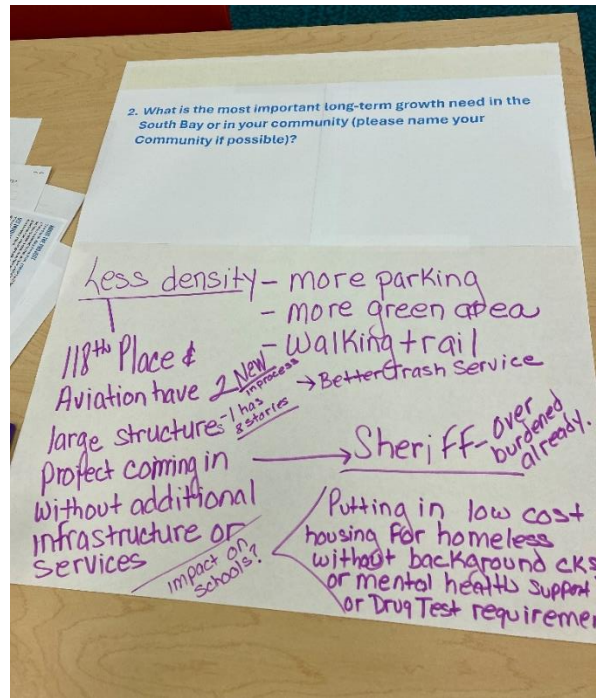 2. What is the most important long-term growth need in the
South Bay or in your community (please name your
Community if possible)?
Less density - more parking
- more green area
- Walking trail
→ Better trash Service
118th Place &
Aviation have 2 New
in process
large structures - 1 has
8 stories
project coming in
without additional
infrastructure or
services
impact on
schools?
→ Sheriff - over
burdened
already.
Putting in low cost
housing for homeless
without background cks
or mental health support
or Drug Test